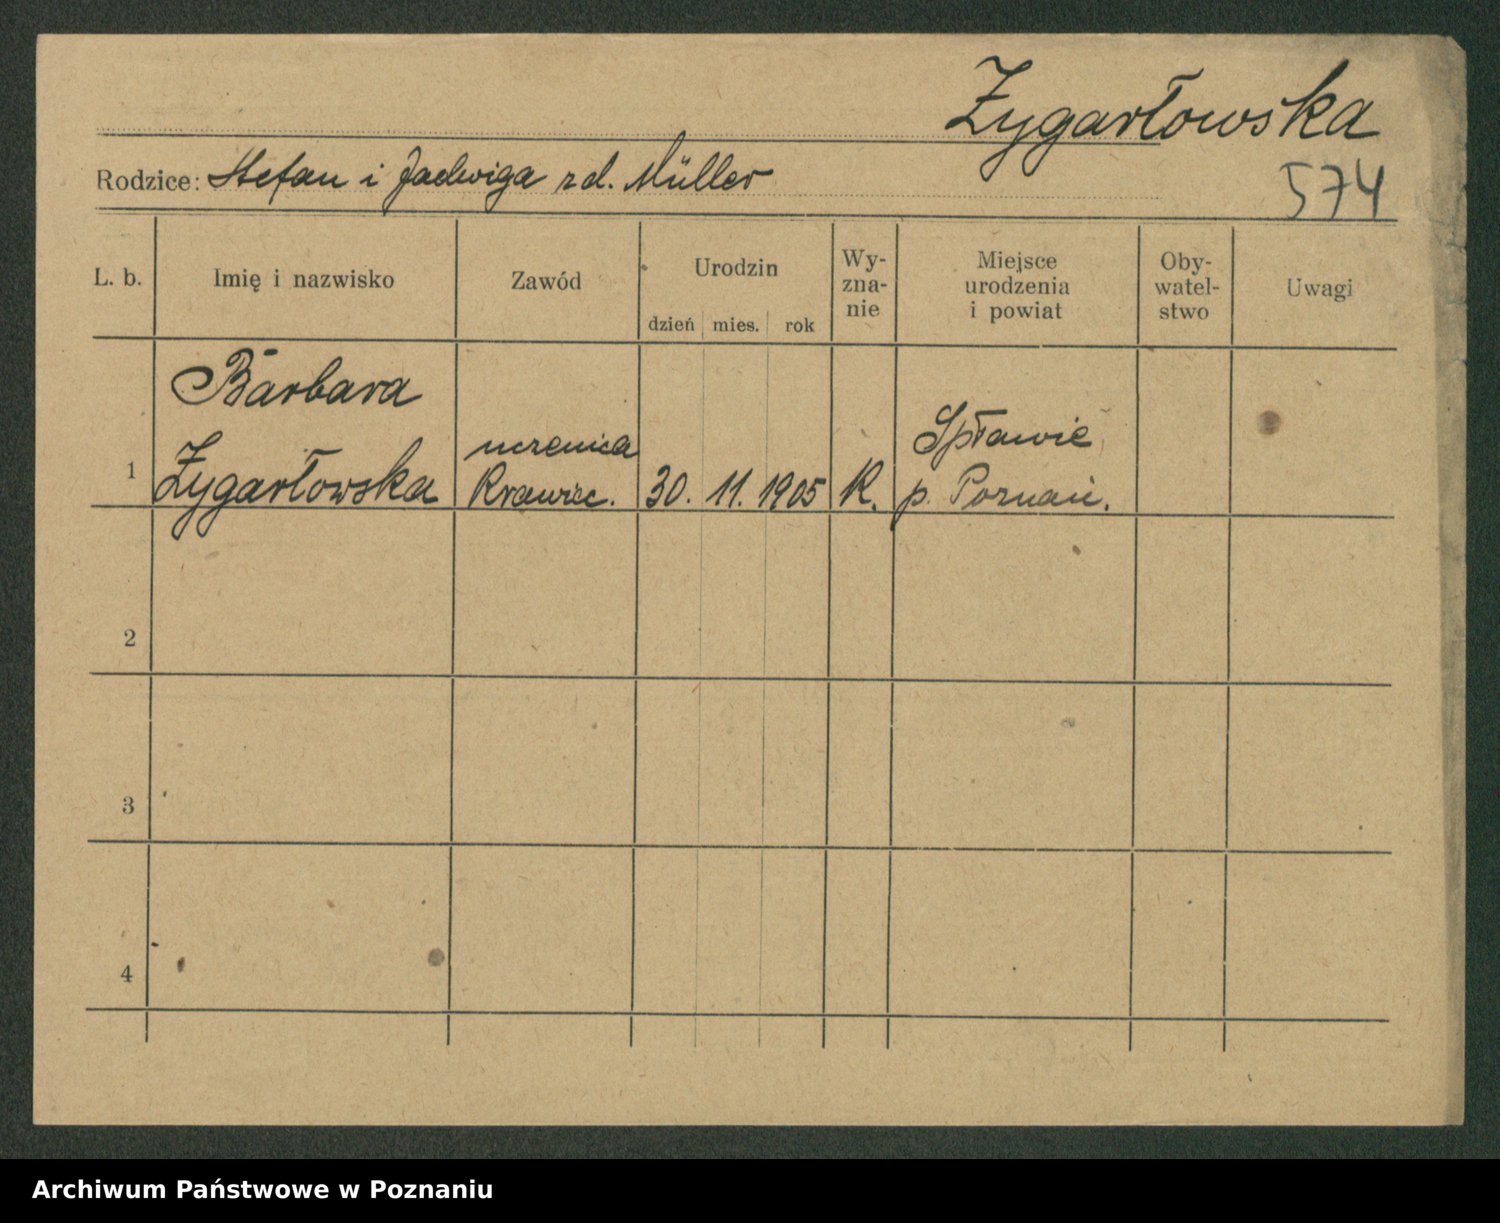 Zygarłowska
574
Rodzice: Stefan i Jadwiga zd. Müller
L. b.
Imię i nazwisko
Zawód
Urodzin
dzień mies. rok
Wy-
zna-
nie
Miejsce
urodzenia
i powiat
Oby-
watel-
stwo
Uwagi
1
Barbara
Zygarłowska
uczenica
Krawiec.
30. 11. 1905
K.
Spławie
p. Poznań.
2
3
4
Archiwum Państwowe w Poznaniu